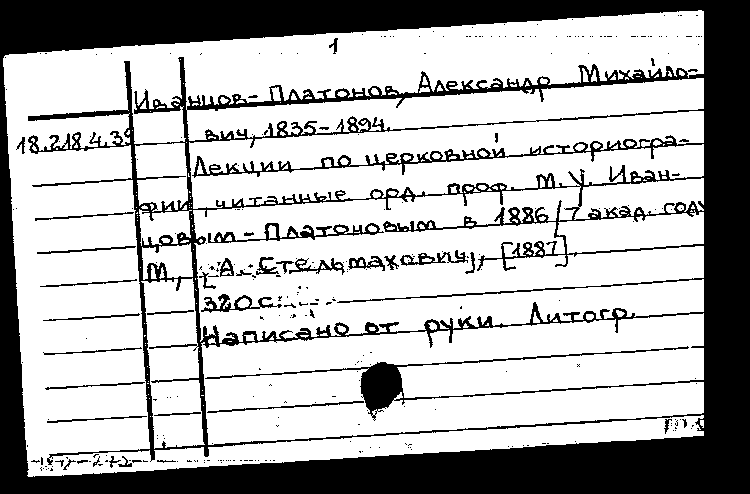 1
Иванцов-Платонов, Александр Михайло-
18.218.4.39 вич, 1835-1894.
Лекции по церковной историогра-
фии, читанные орд. проф. М.У. Иван-
цовым-Платоновым в 1886/7 акад. году
М., [А. Стельмахович], [1887].
320 с.
Написано от руки. Литогр.